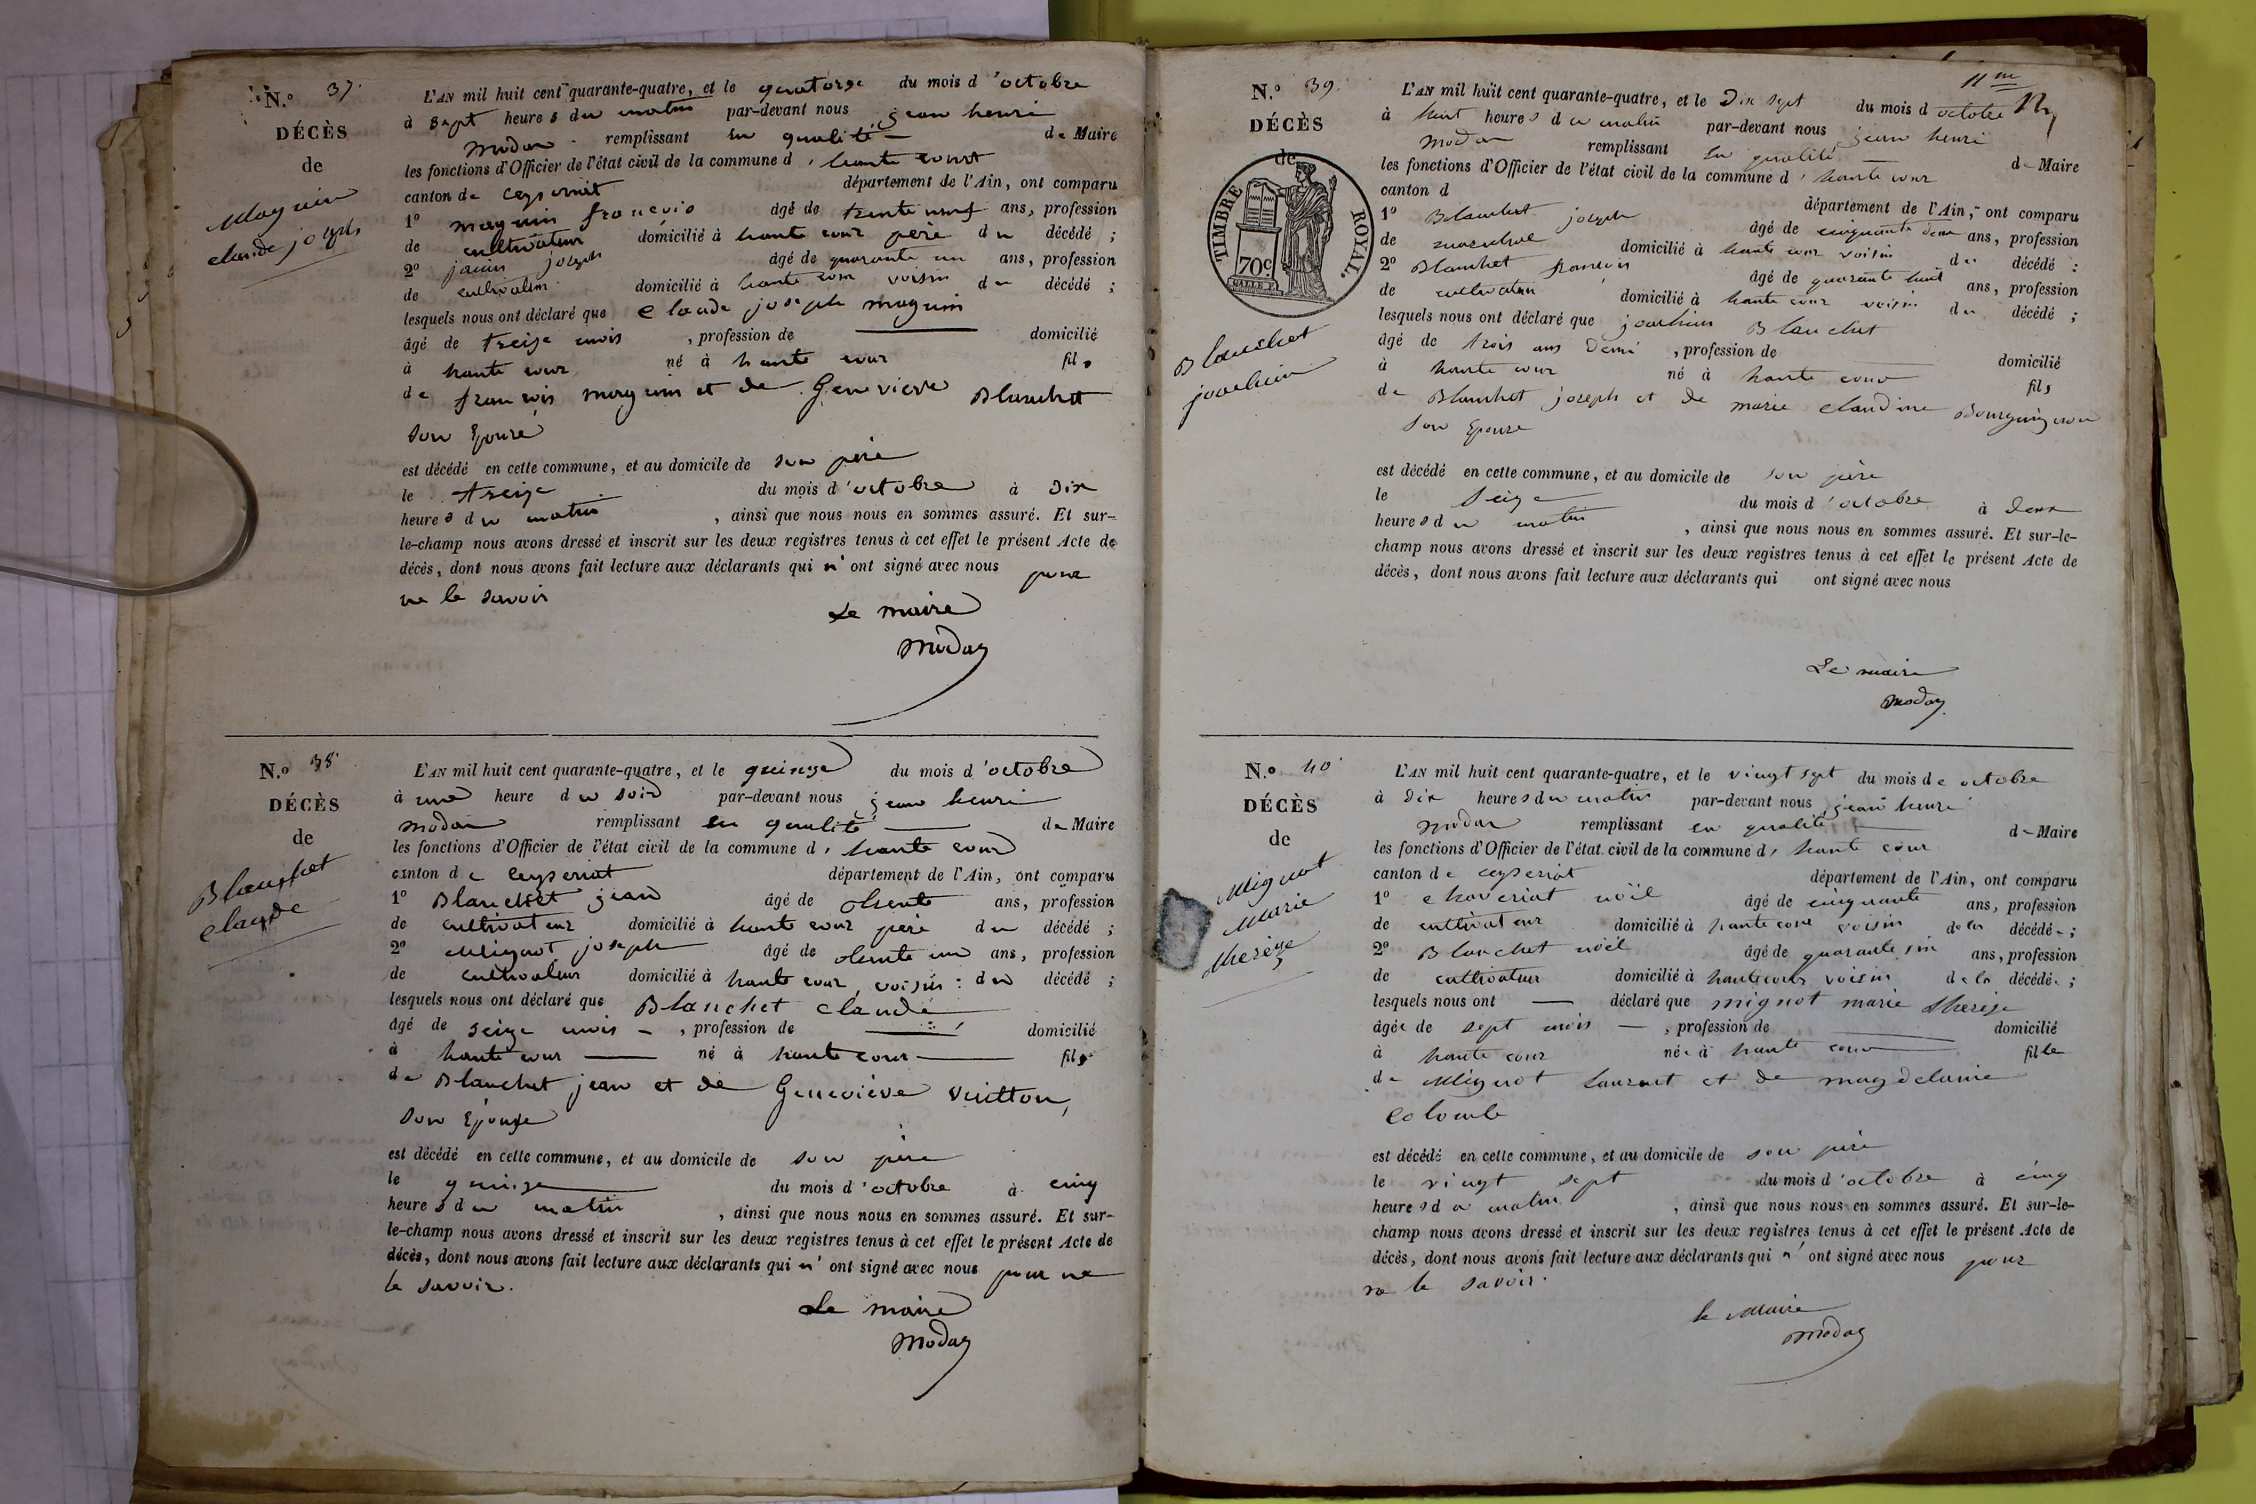 N.o 37.
DÉCÈS
de
Maguin
claude joseph
L'AN mil huit cent quarante-quatre, et le quatorze du mois d'octobre
à sept heures du matin par-devant nous jean henri
modas remplissant en qualité de Maire
les fonctions d'Officier de l'état civil de la commune d'haute court
canton de ceyseriat département de l'Ain, ont comparu
1o maguin francois âgé de trente neuf ans, profession
de cultivateur domicilié à haute cour père du décédé ;
2o joseph âgé de quarante un ans, profession
de cultivateur domicilié à haute cour voisin du décédé ;
lesquels nous ont déclaré que claude joseph maguin
âgé de treize mois , profession de domicilié
à haute cour né à haute cour fils
de francois maguin et de Genevieve Blanchet
son Epouse
est décédé en cette commune, et au domicile de son père
le treize du mois d'octobre à dix
heures du matin , ainsi que nous nous en sommes assuré. Et sur-
le-champ nous avons dressé et inscrit sur les deux registres tenus à cet effet le présent Acte de
décès, dont nous avons fait lecture aux déclarants qui n'ont signé avec nous pour
ne le savoir
Le maire
Modas
N.o 38.
DÉCÈS
de
Blanchet
claude
L'AN mil huit cent quarante-quatre, et le quinze du mois d'octobre
à une heure du soir par-devant nous jean henri
modas remplissant en qualité de Maire
les fonctions d'Officier de l'état civil de la commune d'haute cour
canton de ceyseriat département de l'Ain, ont comparu
1o Blanchet jean âgé de trente ans, profession
de cultivateur domicilié à haute cour père du décédé ;
2o Mignot joseph âgé de trente un ans, profession
de cultivateur domicilié à haute cour, voisin du décédé ;
lesquels nous ont déclaré que Blanchet claude
âgé de seize mois , profession de domicilié
à haute cour né à haute cour fils
de Blanchet jean et de Geneviève Vuitton,
son Epouse
est décédé en cette commune, et au domicile de son père
le quinze du mois d'octobre à cinq
heures du matin , ainsi que nous nous en sommes assuré. Et sur-
le-champ nous avons dressé et inscrit sur les deux registres tenus à cet effet le présent Acte de
décès, dont nous avons fait lecture aux déclarants qui n'ont signé avec nous pour ne
le savoir.
Le maire
Modas
11me
N.o 39.
DÉCÈS
de
TIMBRE ROYAL.
70c
Blanchet
joachim
L'AN mil huit cent quarante-quatre, et le Dix sept du mois d'octobre
à huit heures du matin par-devant nous jean henri
modas remplissant en qualité de Maire
les fonctions d'Officier de l'état civil de la commune d'haute cour
canton d département de l'Ain, ont comparu
1o Blanchet joseph âgé de cinquante deux ans, profession
de marechal domicilié à haute cour voisin du décédé ;
2o Blanchet francois âgé de quarante huit ans, profession
de cultivateur domicilié à haute cour voisin du décédé ;
lesquels nous ont déclaré que joachim Blanchet
âgé de trois ans demi , profession de domicilié
à haute cour né à haute cour fils
de Blanchet joseph et de marie claudine Bourguignon
son Epouse
est décédé en cette commune, et au domicile de son père
le seize du mois d'octobre à deux
heures du matin , ainsi que nous nous en sommes assuré. Et sur-le-
champ nous avons dressé et inscrit sur les deux registres tenus à cet effet le présent Acte de
décès, dont nous avons fait lecture aux déclarants qui ont signé avec nous
Le maire
modas
N.o 40.
DÉCÈS
de
Mignot
Marie
therèze
L'AN mil huit cent quarante-quatre, et le vingt sept du mois de octobre
à Dix heures du matin par-devant nous jean henri
modas remplissant en qualité de Maire
les fonctions d'Officier de l'état civil de la commune d'haute cour
canton de ceyseriat département de l'Ain, ont comparu
1o chaveriat noël âgé de cinquante ans, profession
de cultivateur domicilié à haute cour voisin de la décédée ;
2o Blanchet noël âgé de quarante six ans, profession
de cultivateur domicilié à hautecour voisin de la décédée ;
lesquels nous ont déclaré que mignot marie therèze
âgée de sept mois , profession de domicilié
à haute cour née à haute cour fille
de Mignot laurent et de magdelaine
colomb
est décédé en cette commune, et au domicile de son père
le vingt sept du mois d'octobre à cinq
heures du matin , ainsi que nous nous en sommes assuré. Et sur-le-
champ nous avons dressé et inscrit sur les deux registres tenus à cet effet le présent Acte de
décès, dont nous avons fait lecture aux déclarants qui n'ont signé avec nous pour
ne le savoir.
le Maire
modas